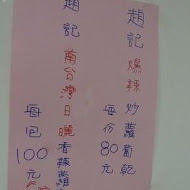 趙記爆辣炒蘿蔔乾
每份80元
趙記南台灣日曬香辣蘿
每包100元